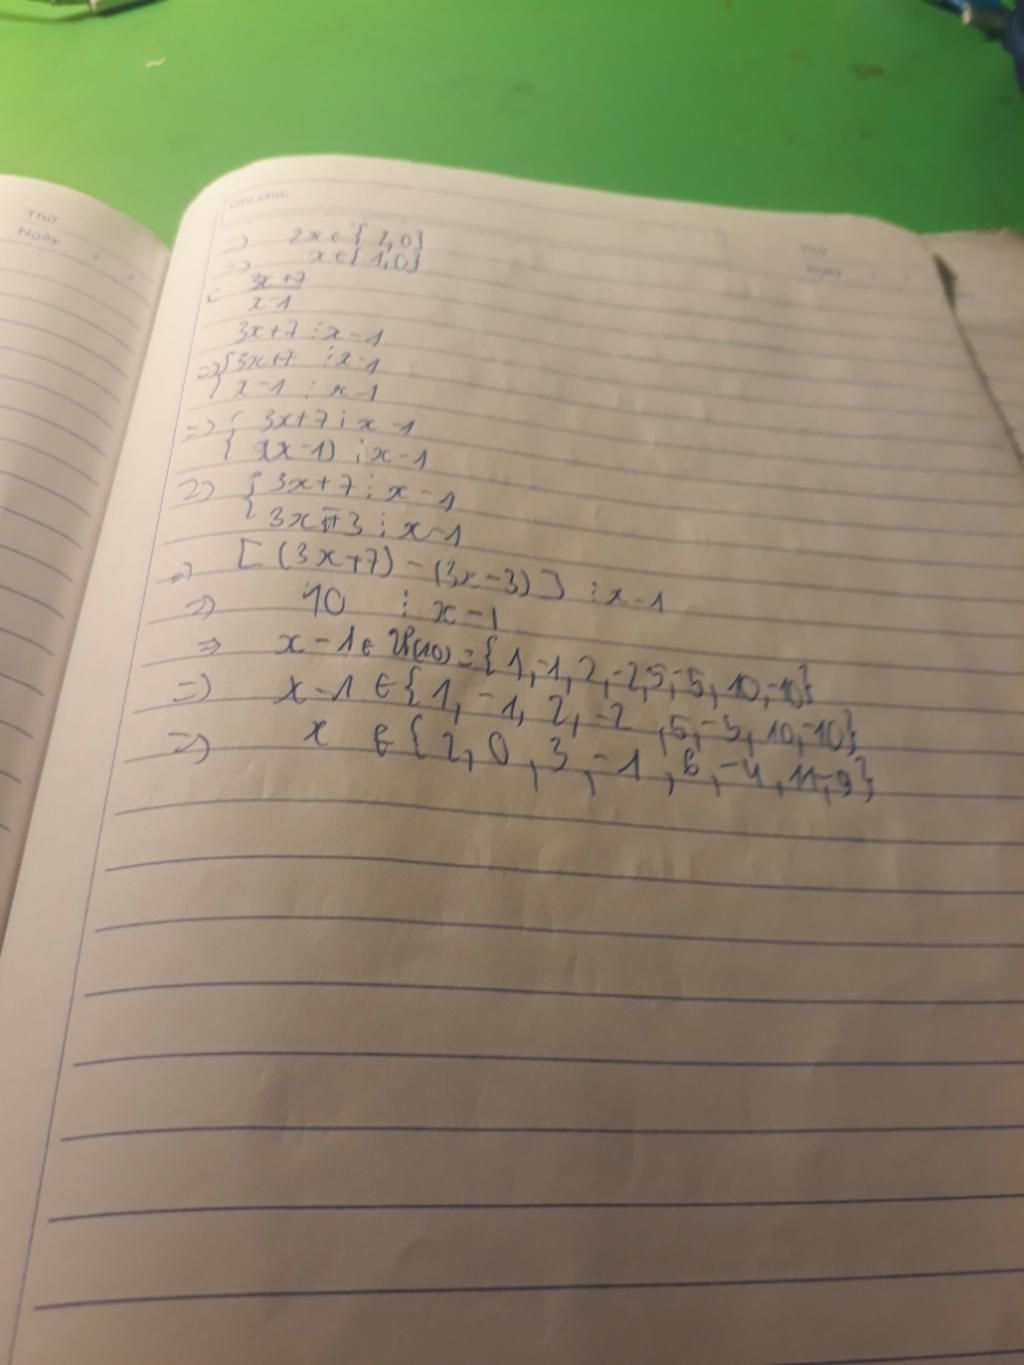 Thứ
Ngày
Ghi chú:
Thứ
Ngày
=) 2x ∈ { 2,0}
=> x ∈ { 1,0}
c 3x+7
x-1
3x+7 ⋮ x-1
=> { 3x+7 ⋮ x-1
x-1 ⋮ x-1
=> { 3x+7 ⋮ x-1
{ 3(x-1) ⋮ x-1
=> { 3x+7 ⋮ x-1
3x-3 ⋮ x-1
=> [ (3x+7) - (3x-3) ] ⋮ x-1
=> 10 ⋮ x-1
=> x-1 ∈ Ư(10) = { 1,-1,2,-2,5,-5,10,-10}
=) x-1 ∈ { 1, -1, 2, -2 ,5,-5,10,-10}
=> x ∈ { 2, 0 , 3, -1 , 6, -4, 11,-9}